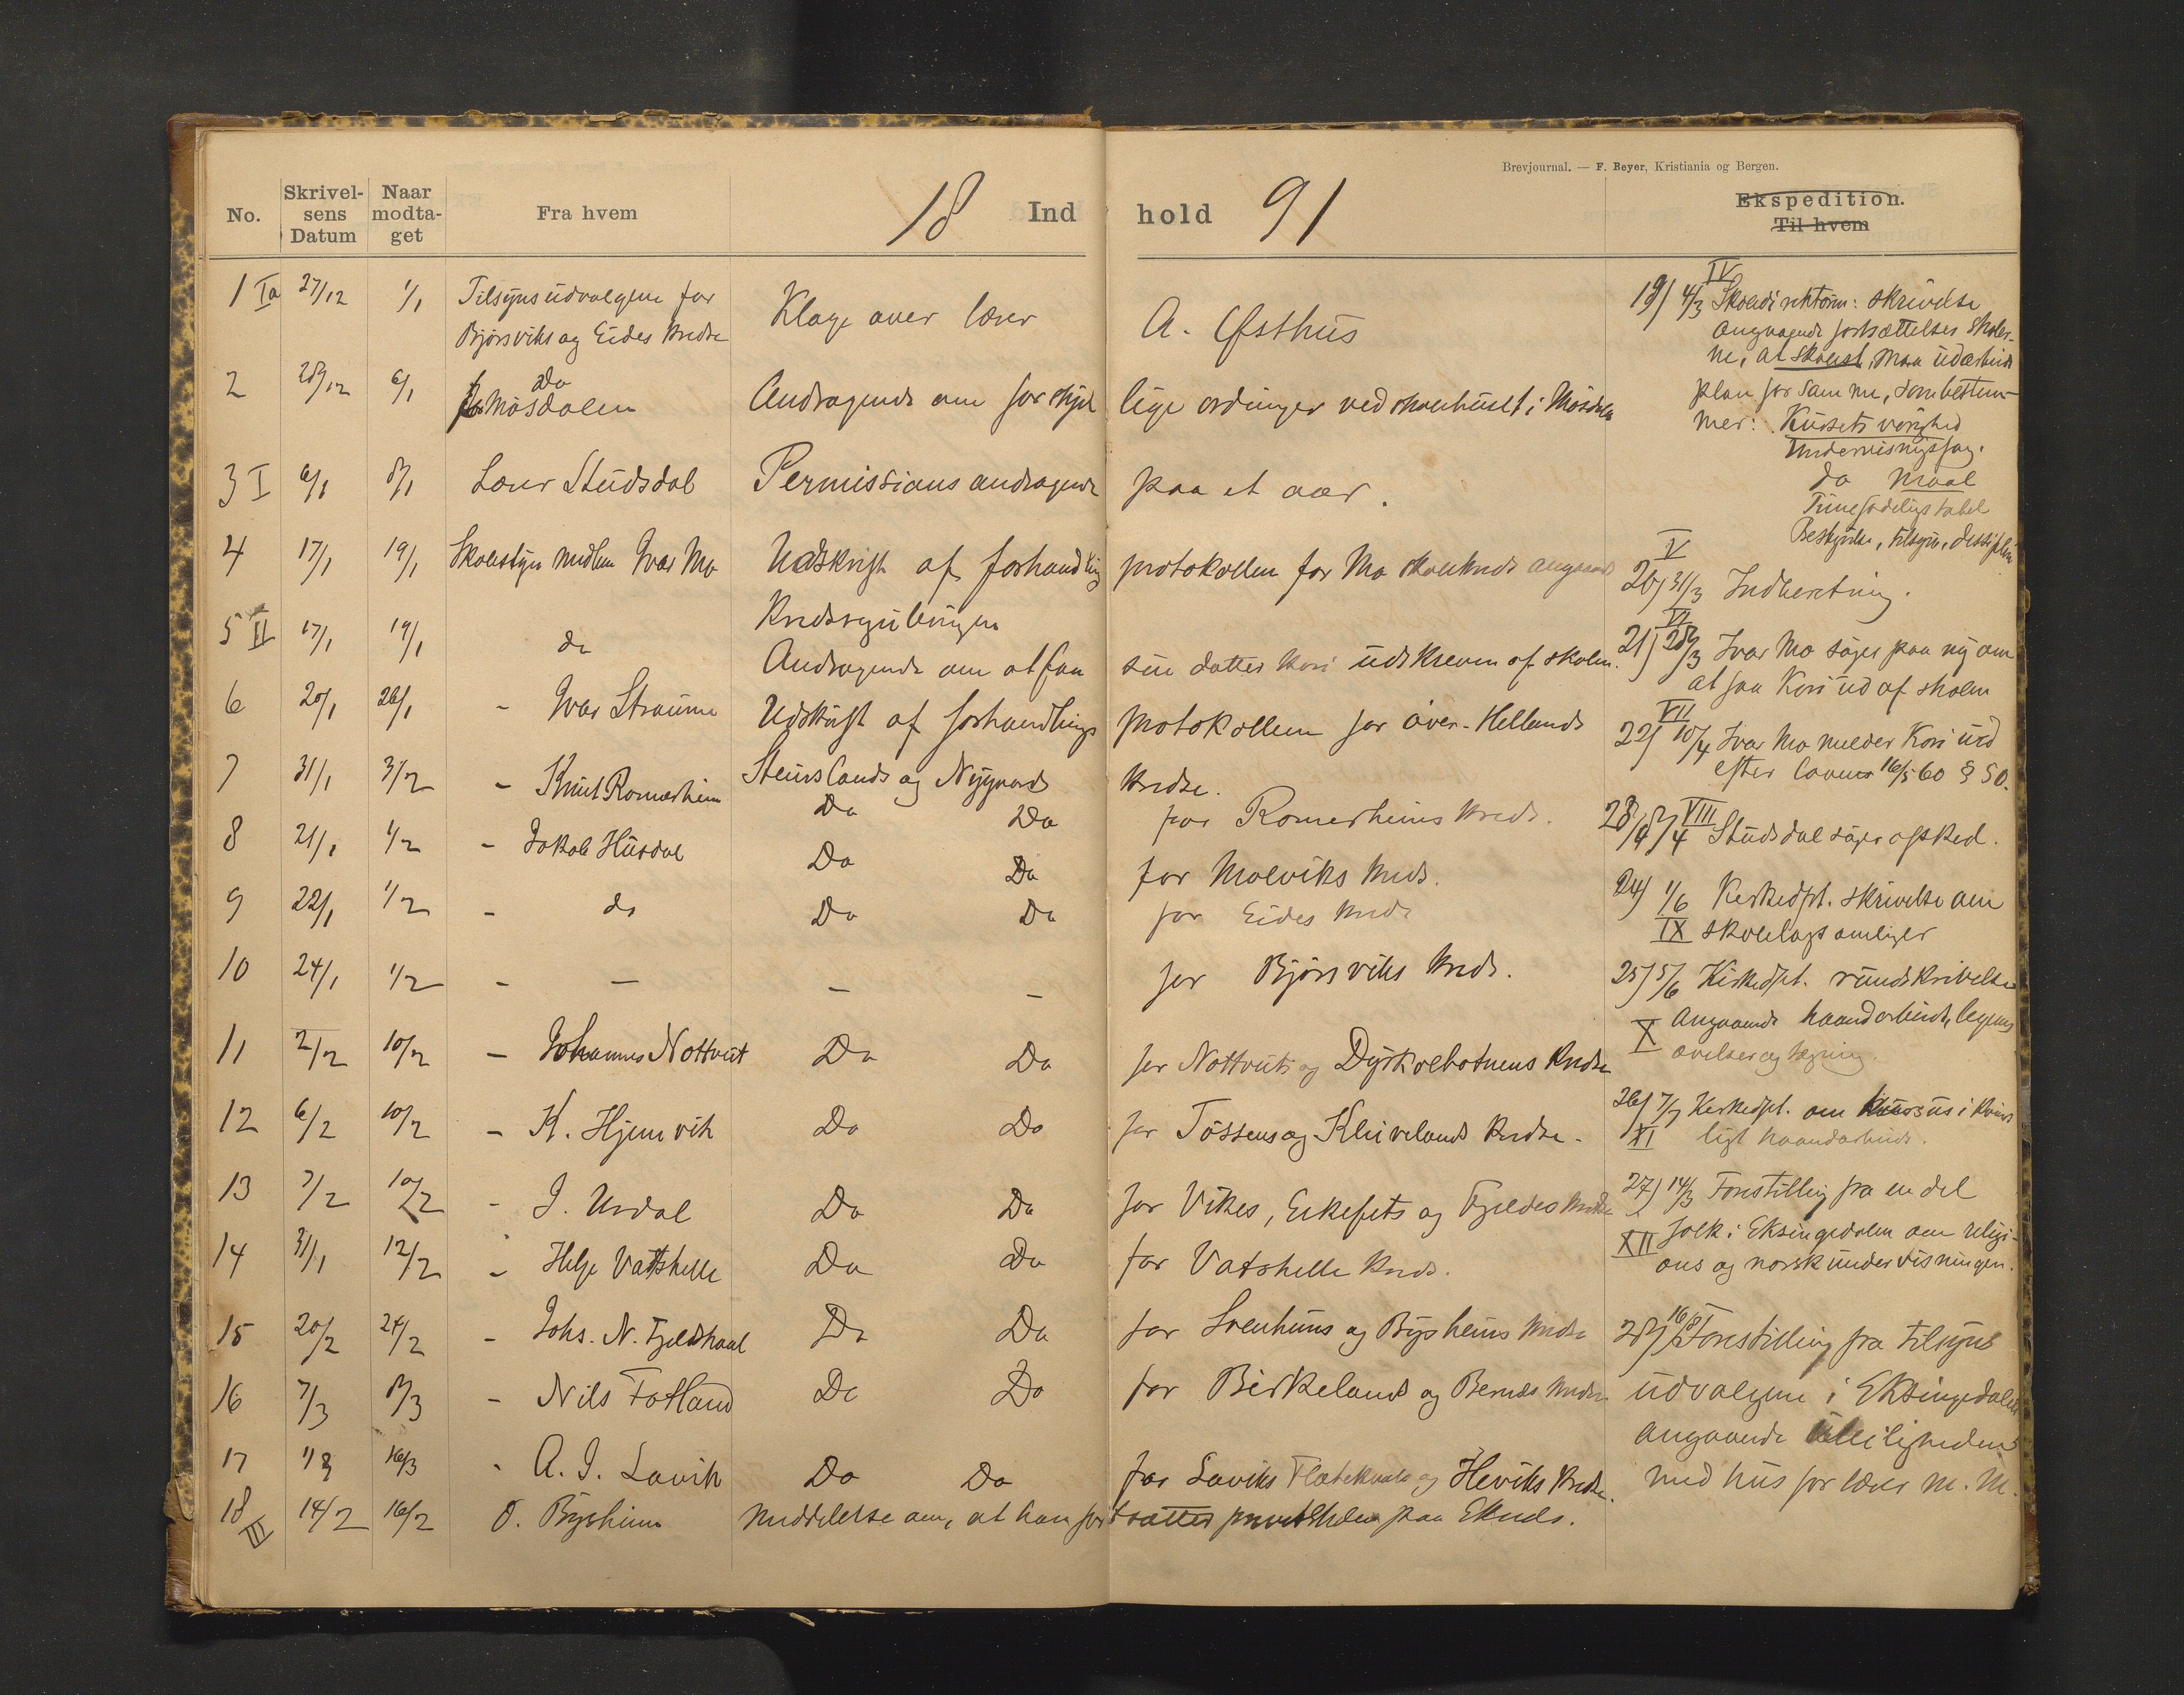 Brevjournal. — F. Beyer, Kristiania og Bergen.
No. Skrivelsens Datum Naar modtaget Fra hvem 18 Indhold 91 Ekspedition. Til hvem
1 Ia 27/12 1/1 Tilsynsudvalgene for Klage over lærer A. Østhus
Bjørsviks og Eides kredse
2 28/12 6/1 Do
for Mósdalen Andragende om forskjellige ordninger ved skolehuset i Mósdalen
3 I 6/1 8/1 Lærer Stúdsdal Permissions andragende paa et aar.
4 17/1 19/1 Skolestyremedlem Ivar Mo Udskrift af forhandlingsprotokollen for Mo skolekreds angaaende
Kredsreguleringen
5 II 17/1 19/1 do Andragende om at faa sin datter Kari udskreven af skolen.
6 20/1 26/1 - Ivar Straume Udskrift af forhandlingsprotokollen for óvre-Hellands
Steinslands og Nygaards kredse.
7 31/1 3/2 - Knut Romarheim Do Do for Romerheims kreds.
8 21/1 1/2 - Jakob Húsdal Do Do for Molviks kreds.
9 22/1 1/2 - do Do Do for Eides kreds
10 24/1 1/2 - — — — for Bjørsviks kreds.
11 2/2 10/2 - Johannes Nottveit Do Do for Nottveits og Dyrkolbotnens kredse
12 6/2 10/2 - K. Hjemvik Do Do for Tóssens og Kleivelands kredse.
13 7/2 10/2 - I. Urdal Do Do for Vikes, Eikefets og Fjeldes kredse
14 31/1 12/2 - Helje Vatshelle Do Do for Vatshelle kreds.
15 20/2 24/2 - Johs. N. Fjeldskaal Do Do for Lvenhuns og Bysheims kredse
16 7/3 8/3 - Nils Fotland Do Do for Birkelands og Bernes kredse
17 16/3 - A. I. Lavik Do Do for Laviks Flatekvals og Heviks kredse.
18 III 14/2 16/2 O. Bysheim meddelelse om, at han fortsætter privatskolen paa Eknes.
19) 4/3 IV Skoledirektøren: skrivelse
angaaende fortsættelses skoler-
ne, at skolest. maa udarbeide
plan for samme, som bestem-
mer: Kursets varighed
Undervisningsfag.
do maal
Timefordelingstabel
Bestyrelse, tilsyn, dessiplin
V
20) 31/3 Indberetning.
VI
21) 28/3 Ivar Mo søger paa ny om
at faa Kari ud af skolen
VII
22) 10/4 Ivar Mo melder Kari ud
efter loven 16/5 60 § 50.
VIII
Studsdal søger afsked.
24) 1/6 Kirkedpt. skrivelse om
IX skolelagsamlinger
25) 5/6 Kirkedpt. rundskrivelse
X angaaende haandarbeide, legems
øvelser og tegning.
26) 7/7 Kirkedpt. om kursus i kvinde
XI ligt haandarbeide.
27) 14/3 Forestilling fra en del
XII folk i Eksingedalen om religi-
ons og norskundervisningen.
28) 16/8 Forestilling fra tilsyns
udvalgene i Eksingedalen
angaaende uleiligheden
med hus for lærer m. m.